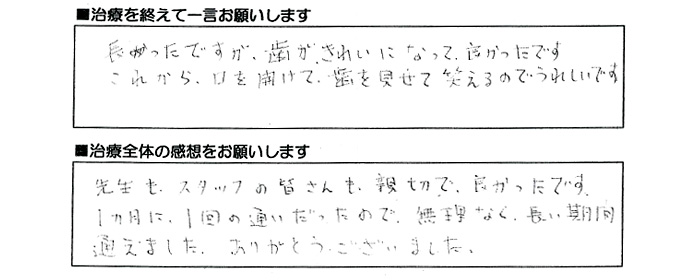 ■治療を終えて一言お願いします
長かったですが、歯がきれいになって、良かったです
これから、口を開けて、歯を見せて笑えるのでうれしいです
■治療全体の感想をお願いします
先生も、スタッフの皆さんも、親切で、良かったです。
1カ月に、1回の通いだったので、無理なく、長い期間
通えました。ありがとうございました。